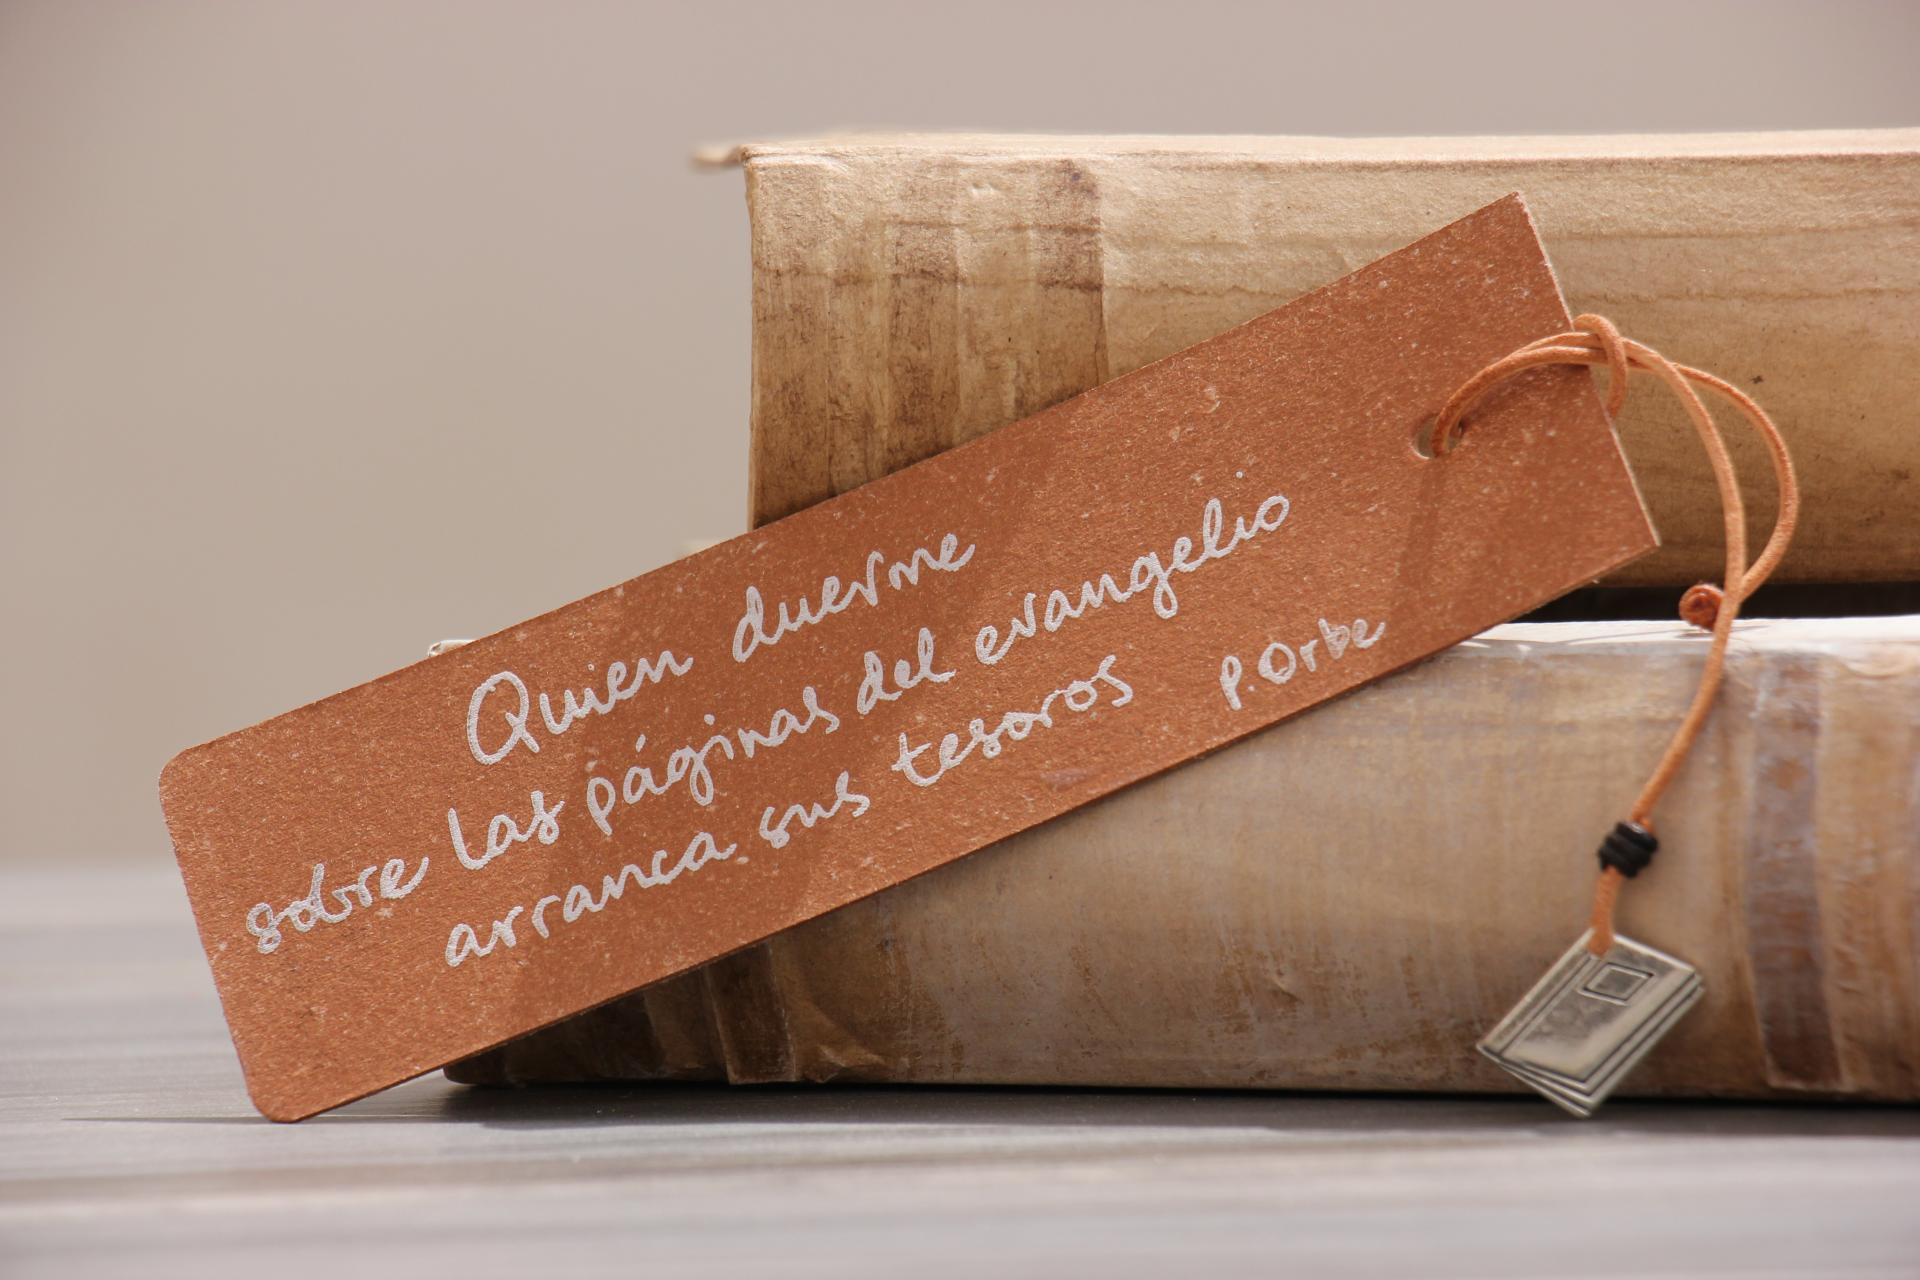 Quien duerme
sobre las páginas del evangelio
arranca sus tesoros P. Orbe